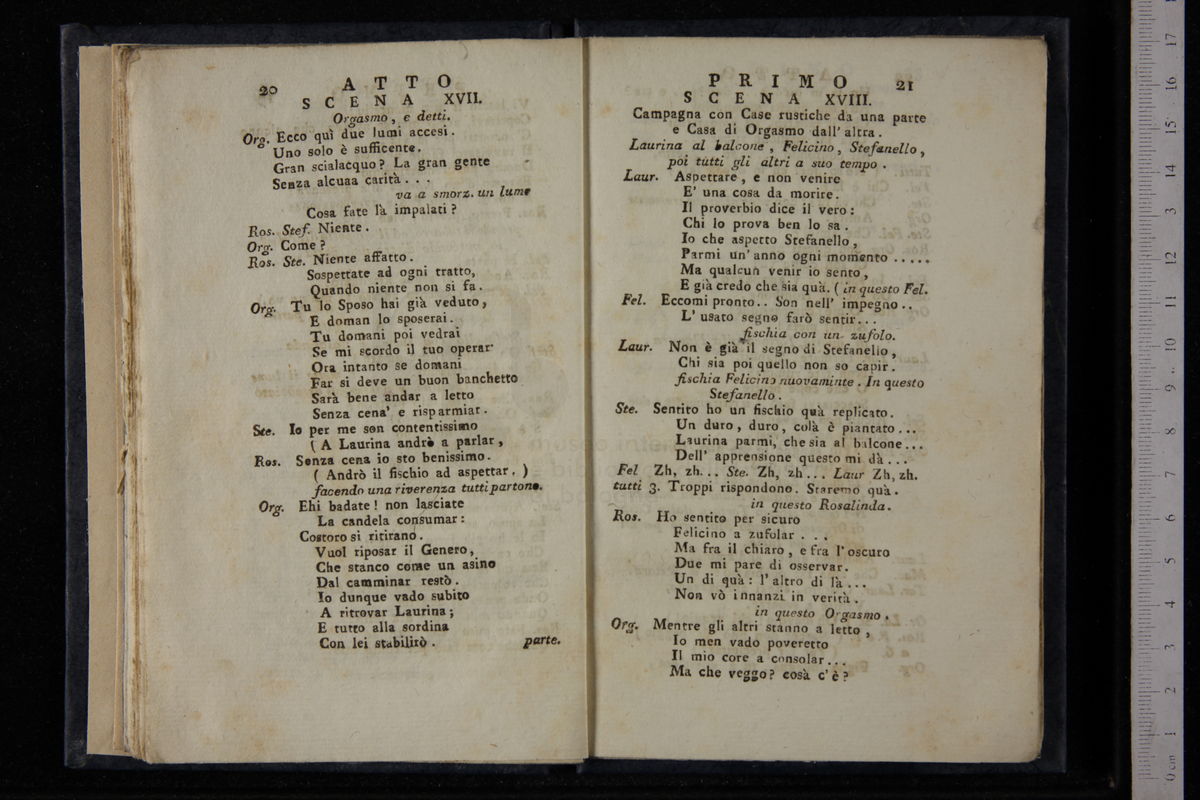 20 ATTO
SCENA XVII.
Orgasmo, e detti.
Org. Ecco quì due lumi accesi.
Uno solo è sufficente.
Gran scialacquo? La gran gente
Senza alcuaa carità...
va a smorz. un lume
Cosa fate là impalati?
Ros. Stef. Niente.
Org. Come?
Ros. Ste. Niente affatto.
Sospettate ad ogni tratto,
Quando niente non si fa.
Org. Tu lo Sposo hai già veduto,
E doman lo sposerai.
Tu domani poi vedrai
Se mi scordo il tuo operar
Ora intanto se domani
Far si deve un buon banchetto
Sarà bene andar a letto
Senza cena' e risparmiar.
Ste. Io per me son contentissimo
(A Laurina andrò a parlar,
Ros. Senza cena io sto benissimo.
(Andrò il fischio ad aspettar.)
facendo una riverenza tutti partono.
Org. Ehi badate! non lasciate
La candela consumar:
Costoro si ritirano.
Vuol riposar il Genero,
Che stanco come un asino
Dal camminar restò.
Io dunque vado subito
A ritrovar Laurina;
E tutto alla sordina
Con lei stabilirò. parte.
PRIMO 21
SCENA XVIII.
Campagna con Case rustiche da una parte
e Casa di Orgasmo dall' altra.
Laurina al balcone, Felicino, Stefanello,
poi tutti gli altri a suo tempo.
Laur. Aspettare, e non venire
E' una cosa da morire.
Il proverbio dice il vero:
Chi lo prova ben lo sa.
Io che aspetto Stefanello,
Parmi un' anno ogni momento.....
Ma qualcun venir io sento,
E già credo che sia quà. (in questo Fel.
Fel. Eccomi pronto.. Son nell' impegno..
L' usato segno farò sentir...
fischia con un zufolo.
Laur. Non è già il segno di Stefanello,
Chi sia poi quello non so capir.
fischia Felicino nuovaminte. In questo
Stefanello.
Ste. Sentito ho un fischio quà replicato.
Un duro, duro, colà è piantato...
Laurina parmi, che sia al balcone...
Dell' apprensione questo mi dà...
Fel Zh, zh... Ste. Zh, zh... Laur Zh, zh.
tutti 3. Troppi rispondono. Staremo quà.
in questo Rosalinda.
Ros. Ho sentito per sicuro
Felicino a zufolar...
Ma fra il chiaro, e fra l' oscuro
Due mi pare di osservar.
Un di quà: l' altro di là...
Non vò innanzi in verità.
in questo Orgasmo.
Org. Mentre gli altri stanno a letto,
Io men vado poveretto
Il mio core a consolar...
Ma che veggo? cosà c' è?
0 cm 1 2 3 4 5 6 7 8 9 10 11 12 13 14 15 16 17